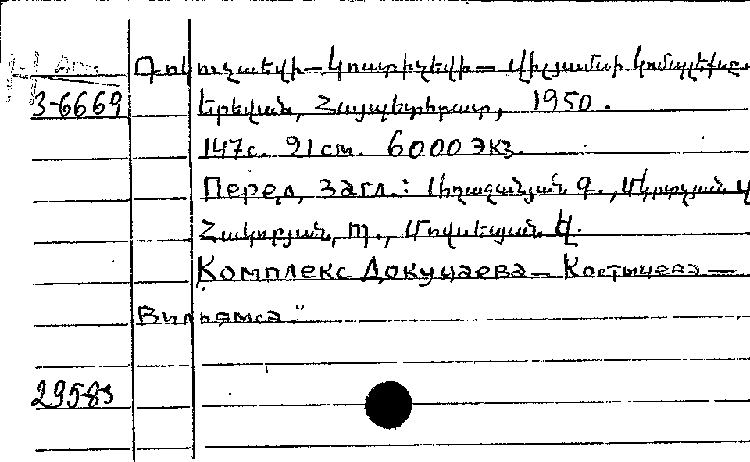 Դոկուչաևի–Կոստիչևի–Վիլյամսի կոմպլեքս.
3-6669 Երևան, Հայպետհրատ, 1950.
147с. 21см. 6000 экз.
Перед загл.: Միրզաջանյան Գ., Մկրտչյան
Հակոբյան, Թ., Մովսեսյան Վ.
Комплекс Докучаева – Костычева –
Вильямса"
29583